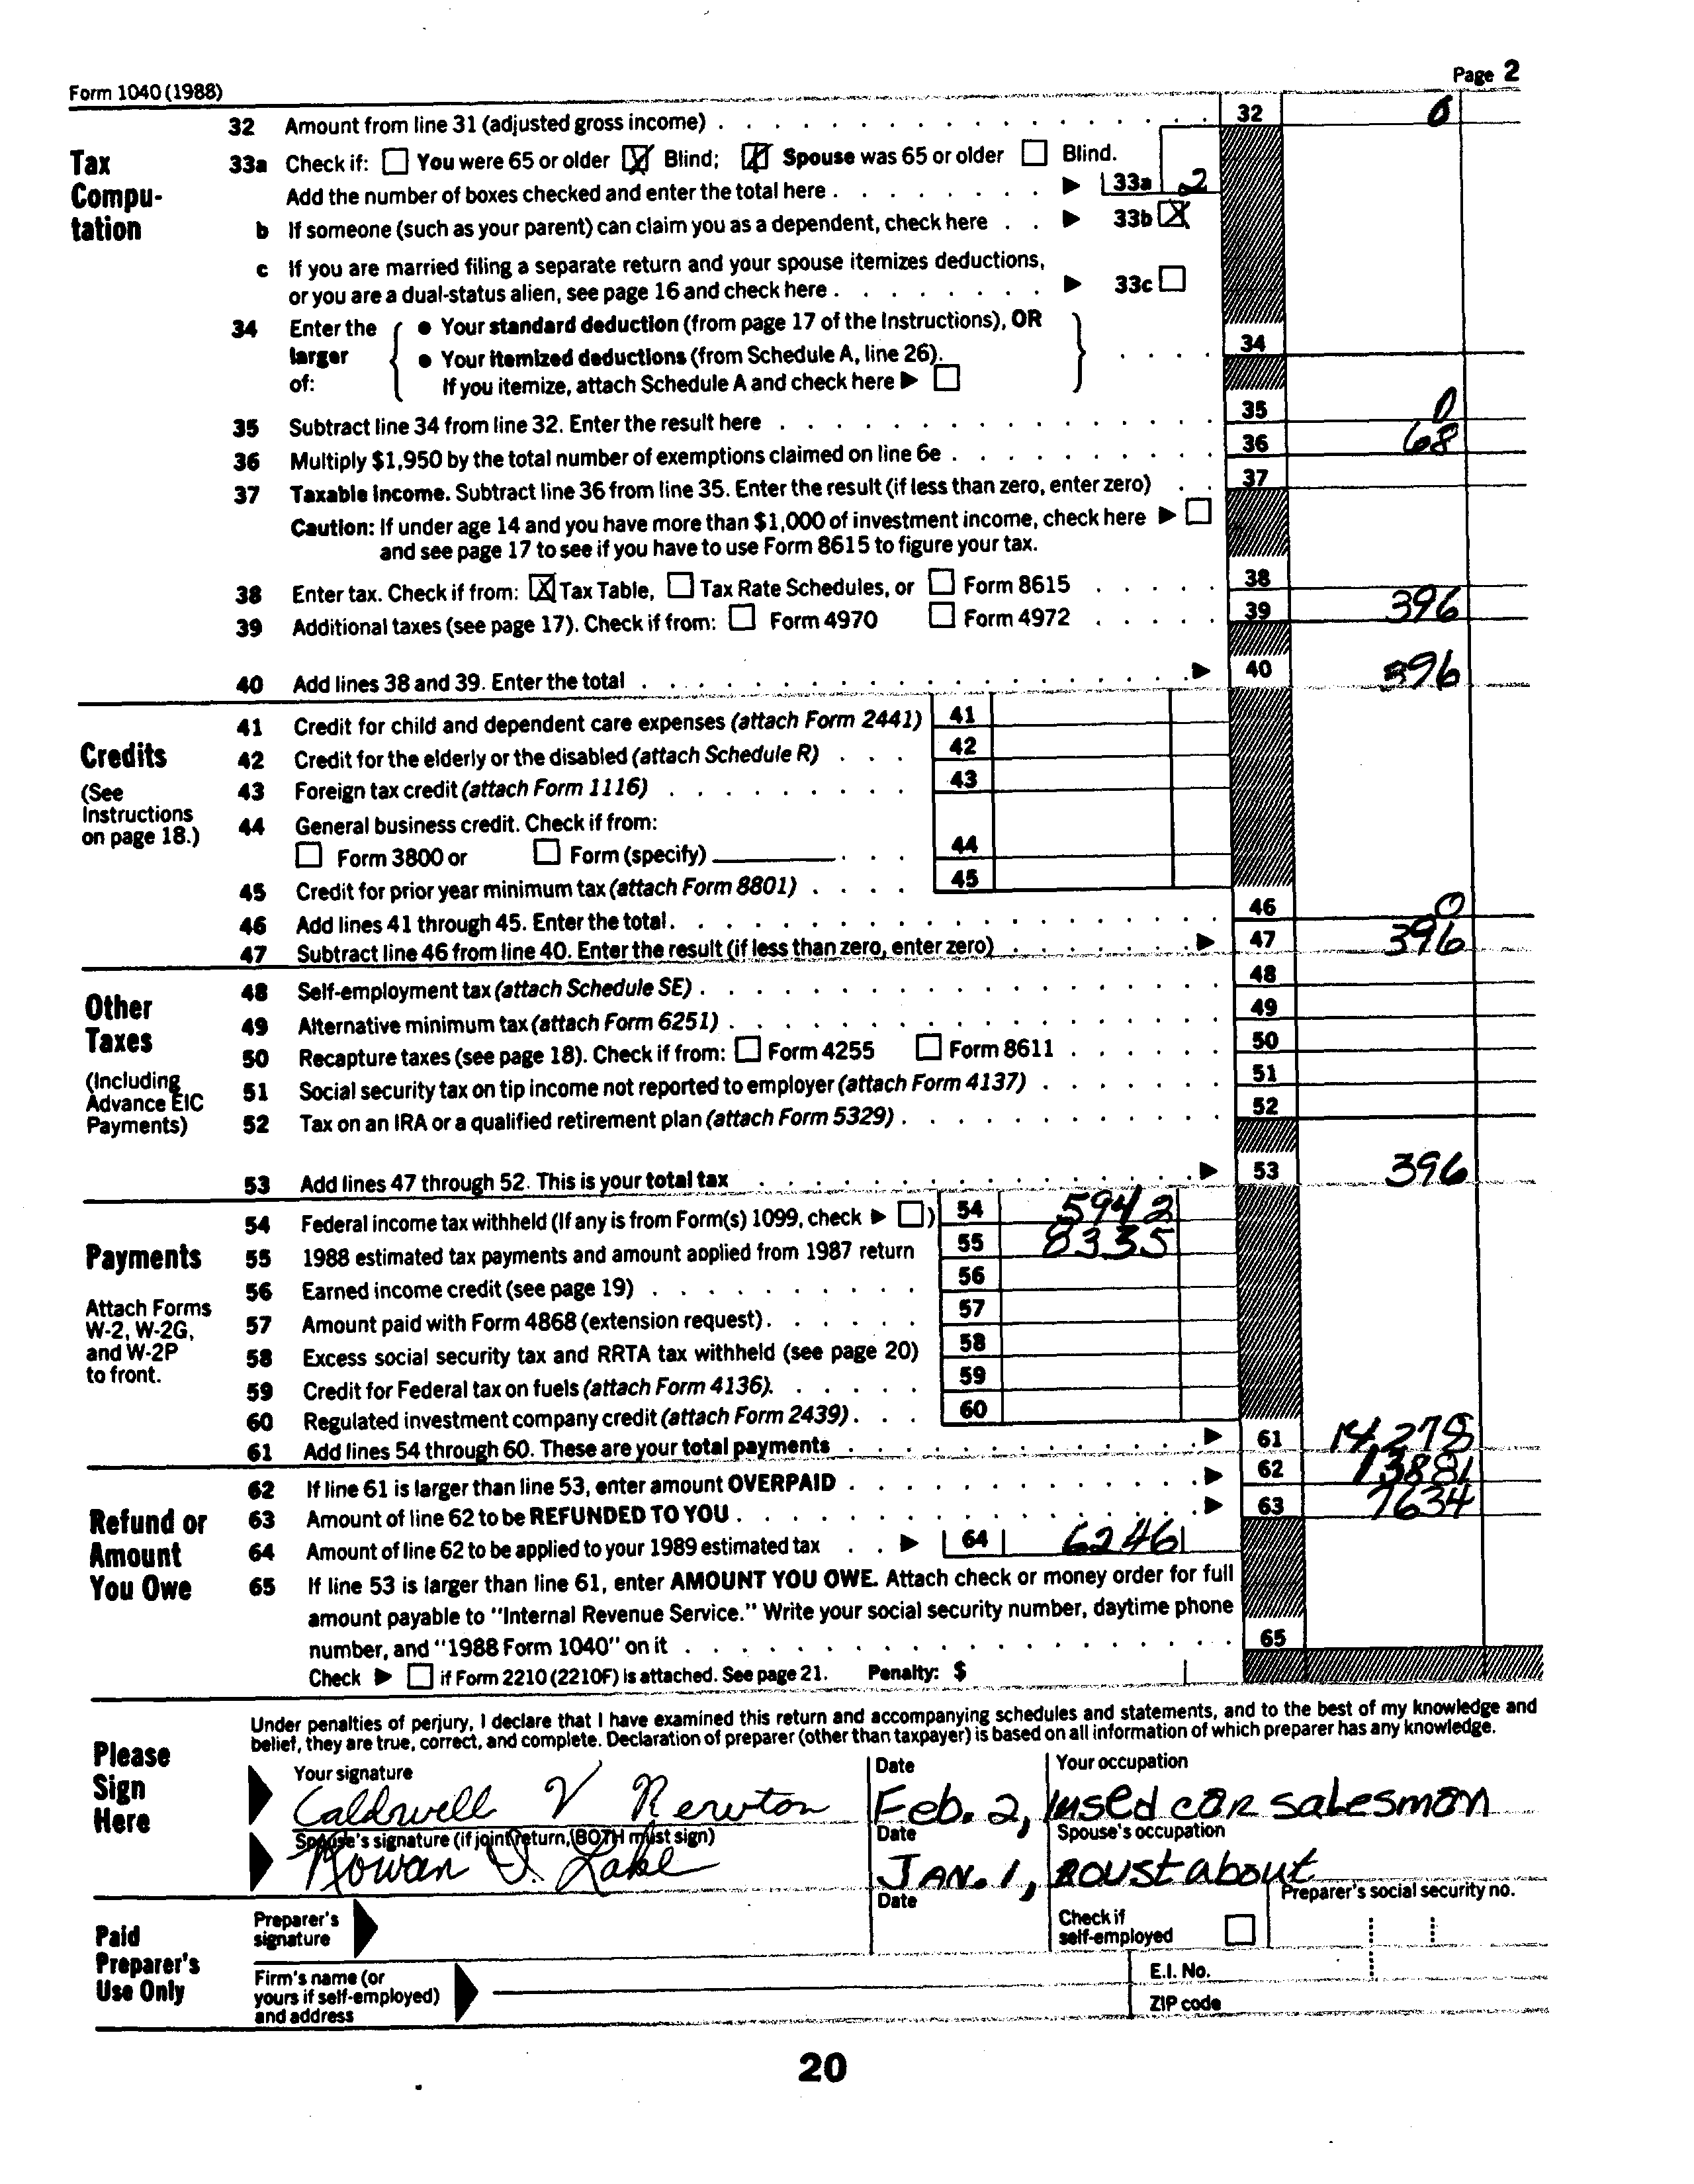 Form 1040 (1988) Page 2
32 Amount from line 31 (adjusted gross income) 32 0
Tax Compu-tation
33a Check if: You were 65 or older X Blind; X Spouse was 65 or older Blind.
Add the number of boxes checked and enter the total here 33a 2
b If someone (such as your parent) can claim you as a dependent, check here 33b X
c If you are married filing a separate return and your spouse itemizes deductions,
or you are a dual-status alien, see page 16 and check here 33c
34 Enter the larger of:
● Your standard deduction (from page 17 of the Instructions), OR
● Your itemized deductions (from Schedule A, line 26). 34
If you itemize, attach Schedule A and check here
35 Subtract line 34 from line 32. Enter the result here 35 0
36 Multiply $1,950 by the total number of exemptions claimed on line 6e 36 68
37 Taxable income. Subtract line 36 from line 35. Enter the result (if less than zero, enter zero) 37
Caution: If under age 14 and you have more than $1,000 of investment income, check here
and see page 17 to see if you have to use Form 8615 to figure your tax.
38 Enter tax. Check if from: X Tax Table, Tax Rate Schedules, or Form 8615 38
39 Additional taxes (see page 17). Check if from: Form 4970 Form 4972 39 396
40 Add lines 38 and 39. Enter the total 40 396
Credits
(See Instructions on page 18.)
41 Credit for child and dependent care expenses (attach Form 2441) 41
42 Credit for the elderly or the disabled (attach Schedule R) 42
43 Foreign tax credit (attach Form 1116) 43
44 General business credit. Check if from:
Form 3800 or Form (specify) 44
45 Credit for prior year minimum tax (attach Form 8801) 45
46 Add lines 41 through 45. Enter the total. 46 0
47 Subtract line 46 from line 40. Enter the result (if less than zero, enter zero) 47 396
Other Taxes
(Including Advance EIC Payments)
48 Self-employment tax (attach Schedule SE) 48
49 Alternative minimum tax (attach Form 6251) 49
50 Recapture taxes (see page 18). Check if from: Form 4255 Form 8611 50
51 Social security tax on tip income not reported to employer (attach Form 4137) 51
52 Tax on an IRA or a qualified retirement plan (attach Form 5329) 52
53 Add lines 47 through 52. This is your total tax 53 396
Payments
Attach Forms W-2, W-2G, and W-2P to front.
54 Federal income tax withheld (If any is from Form(s) 1099, check ) 54 5942
55 1988 estimated tax payments and amount applied from 1987 return 55 8335
56 Earned income credit (see page 19) 56
57 Amount paid with Form 4868 (extension request) 57
58 Excess social security tax and RRTA tax withheld (see page 20) 58
59 Credit for Federal tax on fuels (attach Form 4136). 59
60 Regulated investment company credit (attach Form 2439) 60
61 Add lines 54 through 60. These are your total payments 61 14,278
62 If line 61 is larger than line 53, enter amount OVERPAID 62 13881
63 Amount of line 62 to be REFUNDED TO YOU 63 7634
Refund or Amount You Owe
64 Amount of line 62 to be applied to your 1989 estimated tax 64 6246
65 If line 53 is larger than line 61, enter AMOUNT YOU OWE. Attach check or money order for full
amount payable to "Internal Revenue Service." Write your social security number, daytime phone
number, and "1988 Form 1040" on it 65
Check if Form 2210 (2210F) is attached. See page 21. Penalty: $
Please Sign Here
Under penalties of perjury, I declare that I have examined this return and accompanying schedules and statements, and to the best of my knowledge and
belief, they are true, correct, and complete. Declaration of preparer (other than taxpayer) is based on all information of which preparer has any knowledge.
Your signature Date Your occupation
Caldwell V Newton Feb. 2, used car salesman
Spouse's signature (if joint return, BOTH must sign) Date Spouse's occupation
Rowan J. Lake JAN. 1, Roustabout
Paid Preparer's Use Only
Preparer's signature Date Check if self-employed Preparer's social security no.
Firm's name (or yours if self-employed) and address
E.I. No.
ZIP code
20